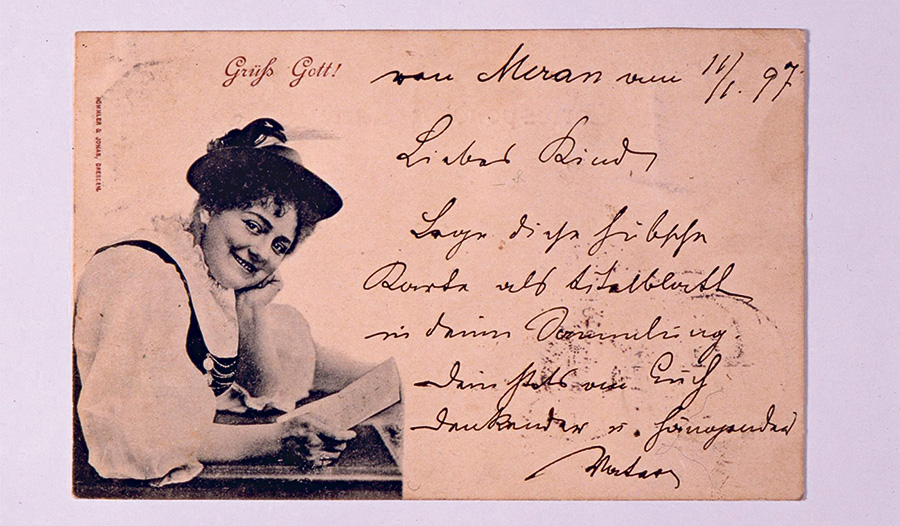 Grüß Gott!
von Meran am 11/1. 97
RÖMMLER & JONAS, DRESDEN.
Liebes Kind
Lege diese hübsche
Karte als Titelblatt
in deine Sammlung
Dein stets an Euch
denkender u. hängender
Vater